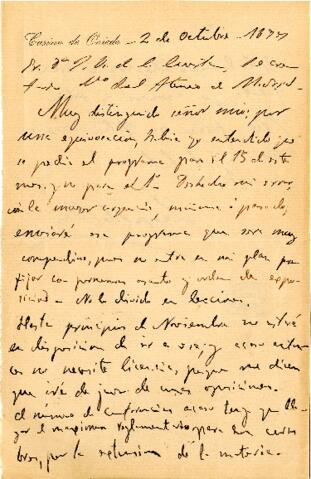 Casino de Oviedo - 2 de Octubre - 1897
Sr. Dn
del Ateneo de Madrid
Muy distinguido señor mio: por
una equivocacion, habia yo entendido que
se pedia el programa para el 15 de este
mes, y no para el 1º. Deshecho mi error,
con la mayor urgencia, mañana ó pasado,
enviaré ese programa que será muy
compendioso, pues no entra en mi plan
fijar con pormenores asunto y orden de expo-
sicion. No lo divido en lecciones.
Hasta principios de Noviembre no estaré
en disposicion de ir a esa, y acaso enton-
ces no necesite licencia, porque me dicen
que iré de juez de unas oposiciones.
El número de Conferencias acaso tenga que lle-
gar al maximum reglamentario para
por la extension de la materia.